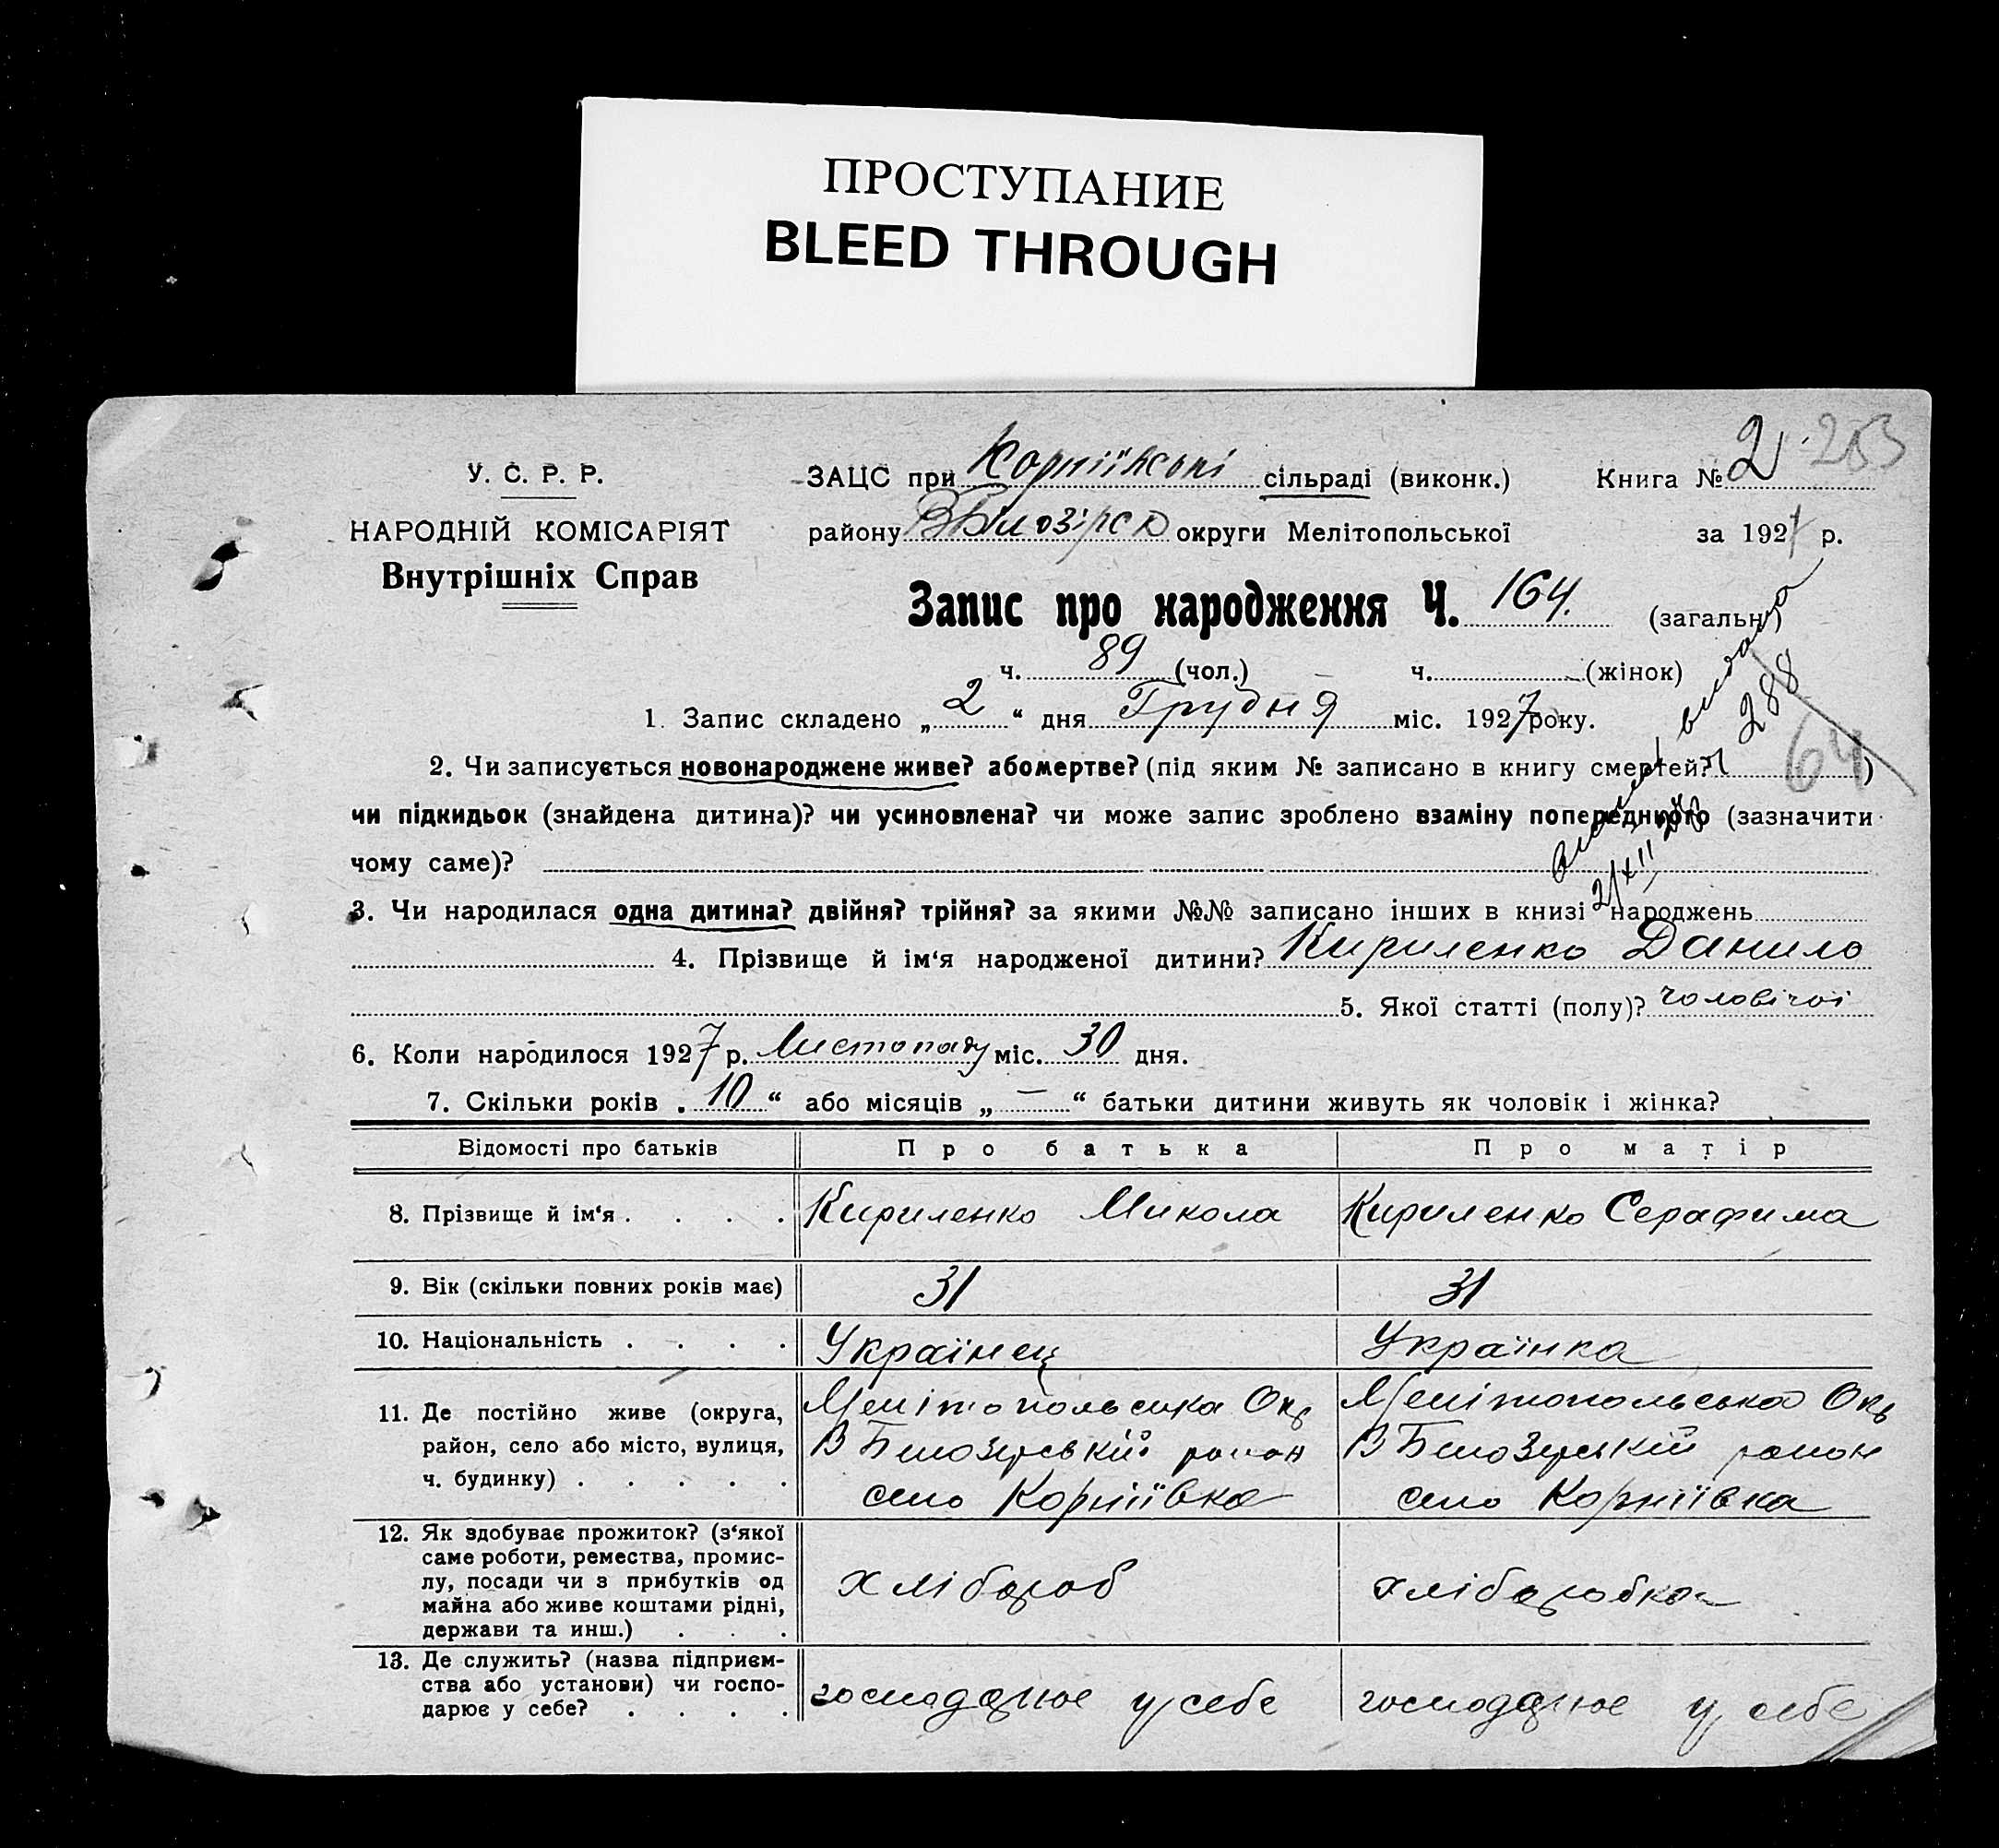 ПРОСТУПАНИЕ
BLEED THROUGH
2 253
У. С. Р. Р.
ЗАЦС при Корніївські сільраді (виконк.) Книга № 2
НАРОДНІЙ КОМІСАРІЯТ
району ВБілозірск округи Мелітопольської за 1927 р.
Внутрішніх Справ
Запис про народження Ч. 164. (загальн.)
ч. 89 (чол.) ч. (жінок)
1. Запис складено „ 2 “ дня Грудня міс. 1927 року.
2. Чи записується новонароджене живе? або мертве? (під яким № записано в книгу смертей? )
чи підкидьок (знайдена дитина)? чи усиновлена? чи може запис зроблено взаміну попереднього (зазначити
чому саме)?
видана
288
64
2/XII 28
3. Чи народилася одна дитина? двійня? трійня? за якими №№ записано інших в книзі народжень
4. Прізвище й ім‘я народженої дитини? Кириленко Данило
5. Якої статті (полу)? чоловічої
6. Коли народилося 1927 р. Листопаду міс. 30 дня.
7. Скільки років „ 10 “ або місяців „ — “ батьки дитини живуть як чоловік і жінка?
Відомості про батьків Про батька Про матір
8. Прізвище й ім‘я . . . . Кириленко Микола Кириленко Серафима
9. Вік (скільки повних років має) 31 31
10. Національність . . . . Українец Українка
11. Де постійно живе (округа, Мелітопольська Окр Мелітопольська Окр
район, село або місто, вулиця, ВБілозерській район ВБілозерській район
ч. будинку) . . . . . село Корніївка село Корніївка
12. Як здобуває прожиток? (з‘якої
саме роботи, ремества, промис-
лу, посади чи з прибутків од хлібороб хліборобка
майна або живе коштами рідні,
держави та инш.) . . .
13. Де служить? (назва підприєм-
ства або установи) чи госпо- господарює у себе господарює у себе
дарює у себе? . . . .